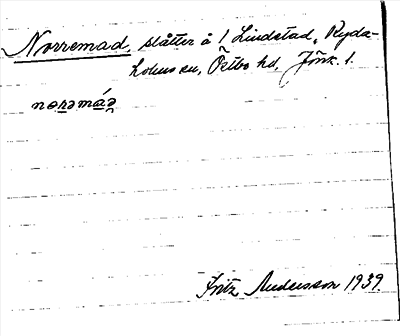 Norremad, slåtter å 1 Lindstad, Ryda-
holms sn, Östbo hd, Jönk. l.
norəmáə
Fritz Andersson 1939.